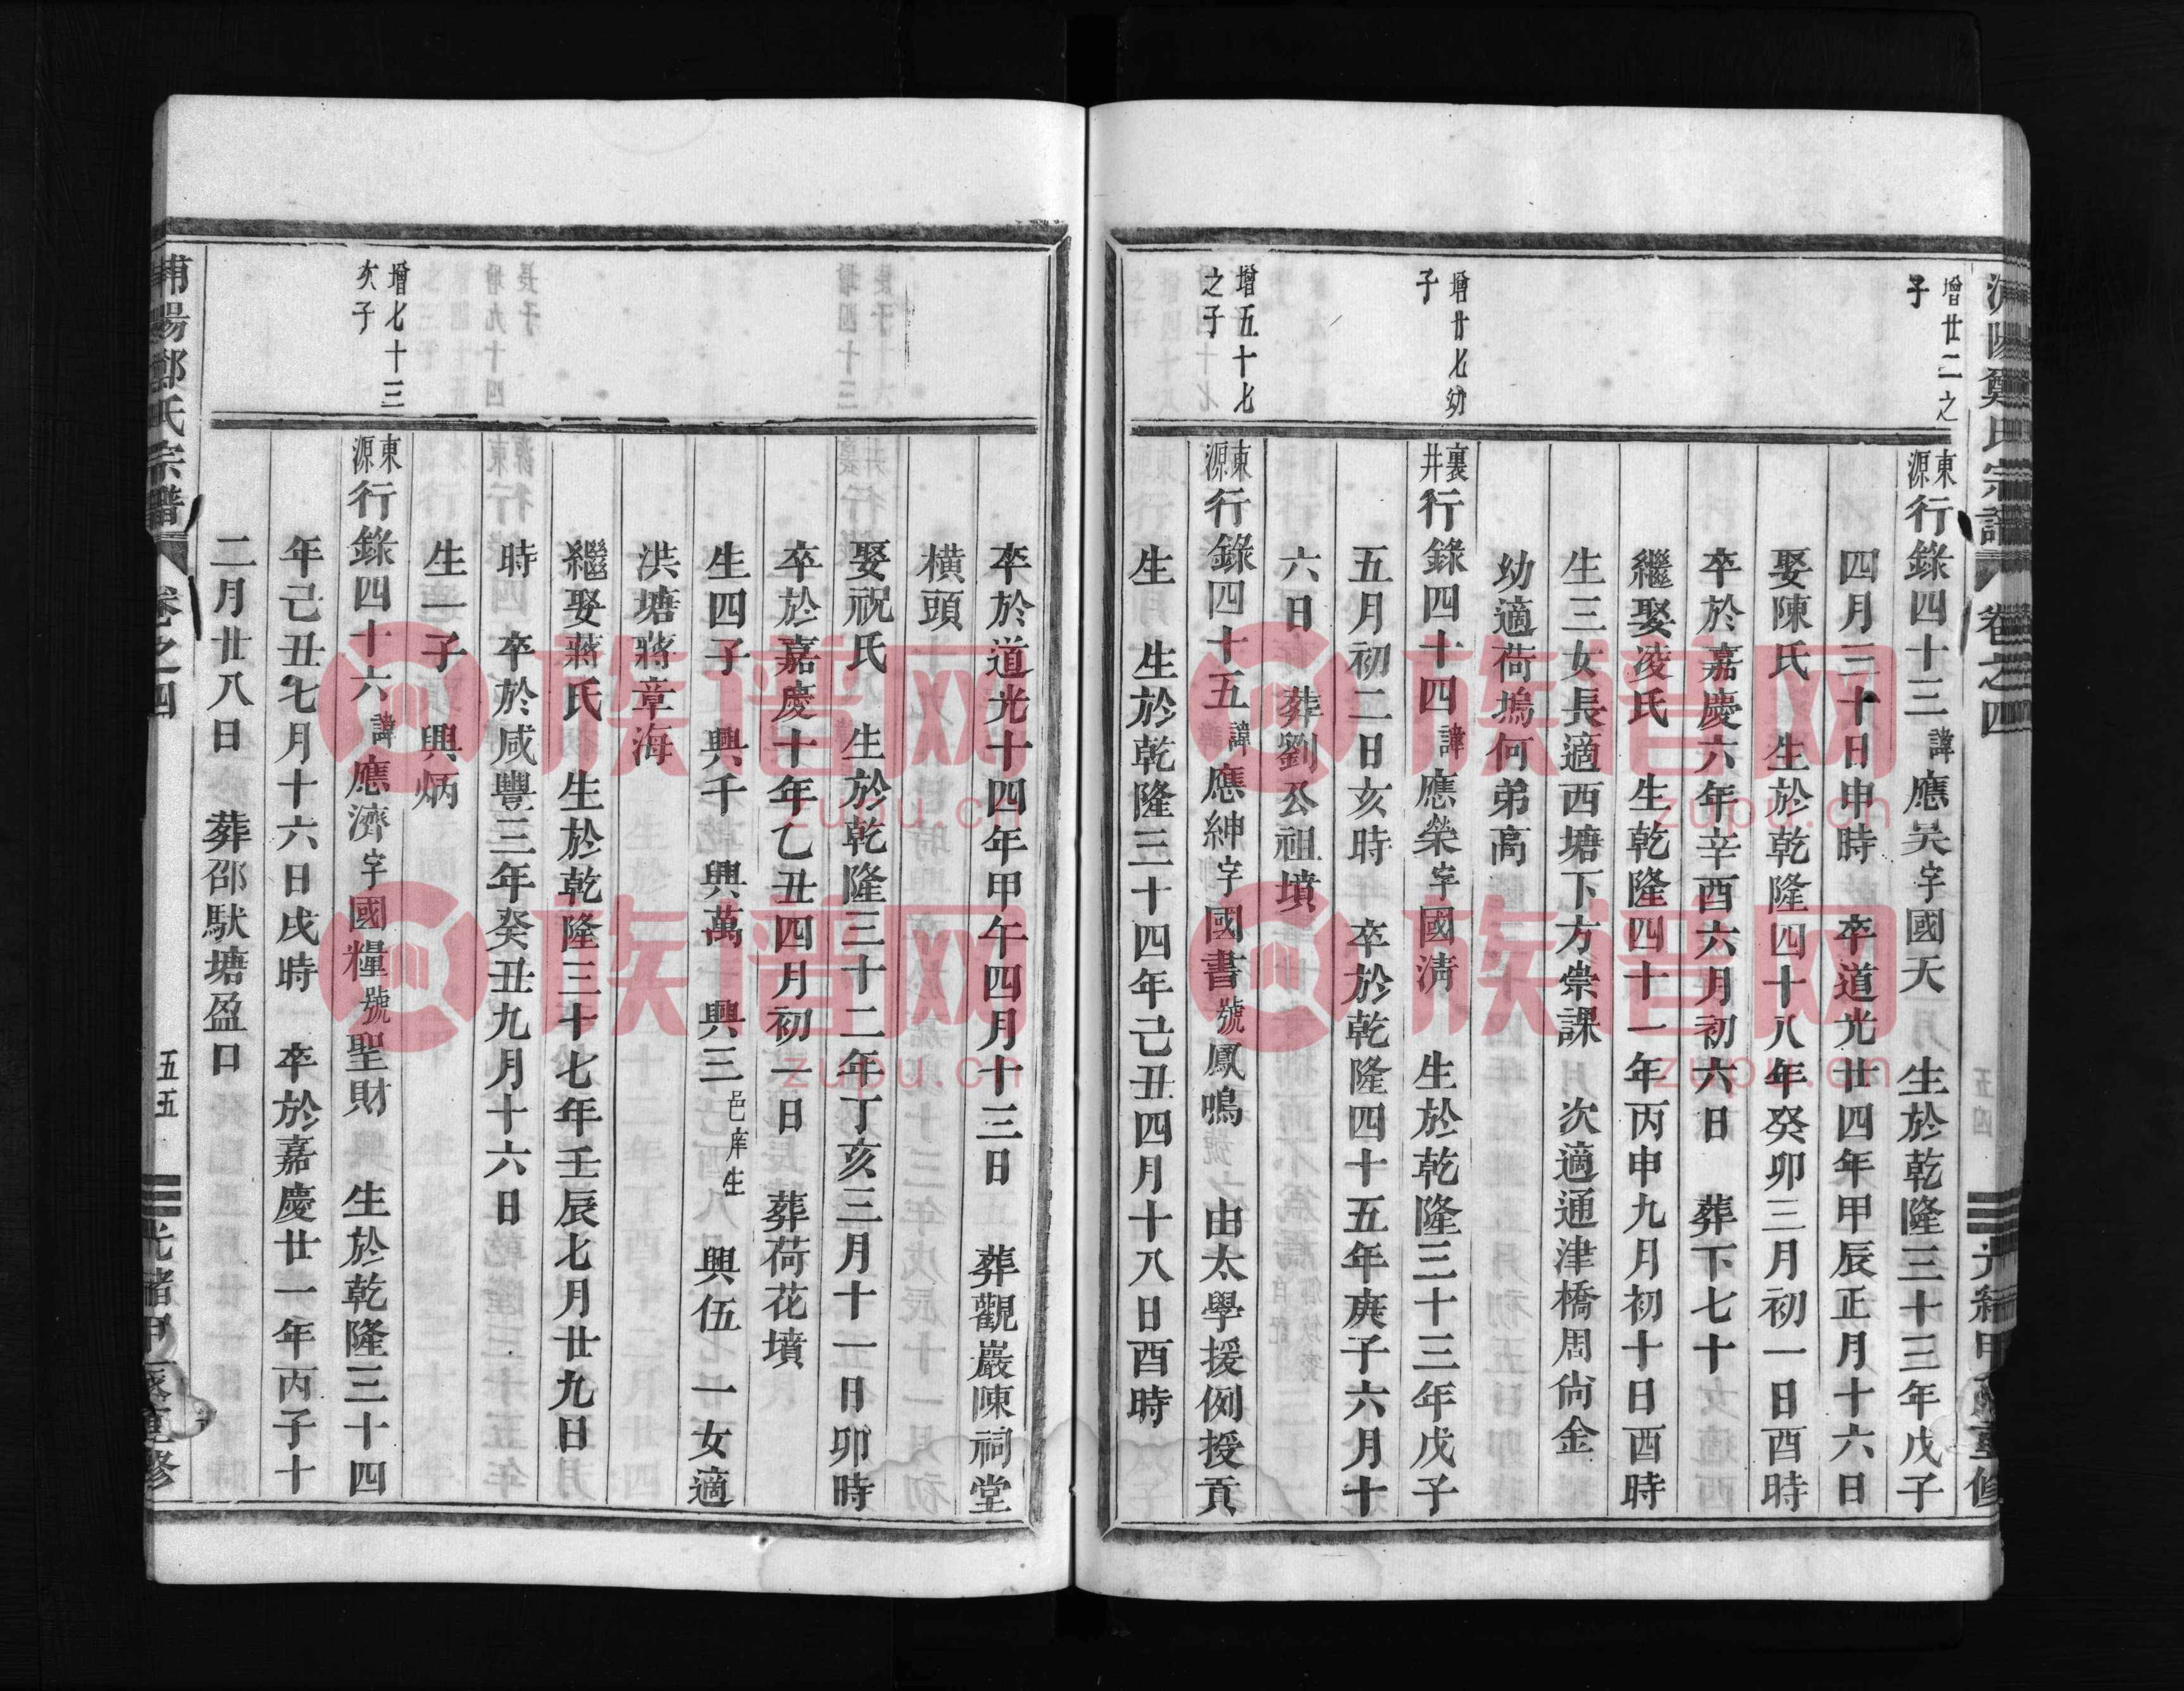 浦陽鄭氏宗譜 卷之四 五四 光緒甲辰重修
增廿二之
子
東源行錄四十三諱應吳字國天 生於乾隆三十三年戊子
四月二十日申時 卒道光廿四年甲辰正月十六日
娶陳氏 生於乾隆四十八年癸卯三月初一日酉時
卒於嘉慶六年辛酉六月初六日 葬下七十
繼娶淩氏 生乾隆四十一年丙申九月初十日酉時
生三女長適西塘下方崇課 次適通津橋周尙金
幼適荷塢何弟高
增廿七幼
子
裏井行錄四十四諱應榮字國淸 生於乾隆三十三年戊子
五月初二日亥時 卒於乾隆四十五年庚子六月十
六日 葬劉公祖墳
增五十七
之子
東源行錄四十五諱應紳字國書號鳳鳴 由太學援例授貢
生 生於乾隆三十四年己丑四月十八日酉時
卒於道光十四年甲午四月十三日 葬觀巖陳祠堂
橫頭
娶祝氏 生於乾隆三十二年丁亥三月十一日卯時
卒於嘉慶十年乙丑四月初一日 葬荷花墳
生四子 興千 興萬 興三邑庠生 興伍 一女適
洪塘蔣章海
繼娶蔣氏 生於乾隆三十七年壬辰七月廿九日
時 卒於咸豐三年癸丑九月十六日
生一子 興炳
增七十三
次子
東源行錄四十六諱應濟字國糧號聖財 生於乾隆三十四
年己丑七月十六日戌時 卒於嘉慶廿一年丙子十
二月廿八日 葬邵馱塘盈口
浦陽鄭氏宗譜 卷之四 五五 光緒甲辰重修
族譜网
zupu.cn
族譜网
zupu.cn
族譜网
zupu.cn
族譜网
zupu.cn